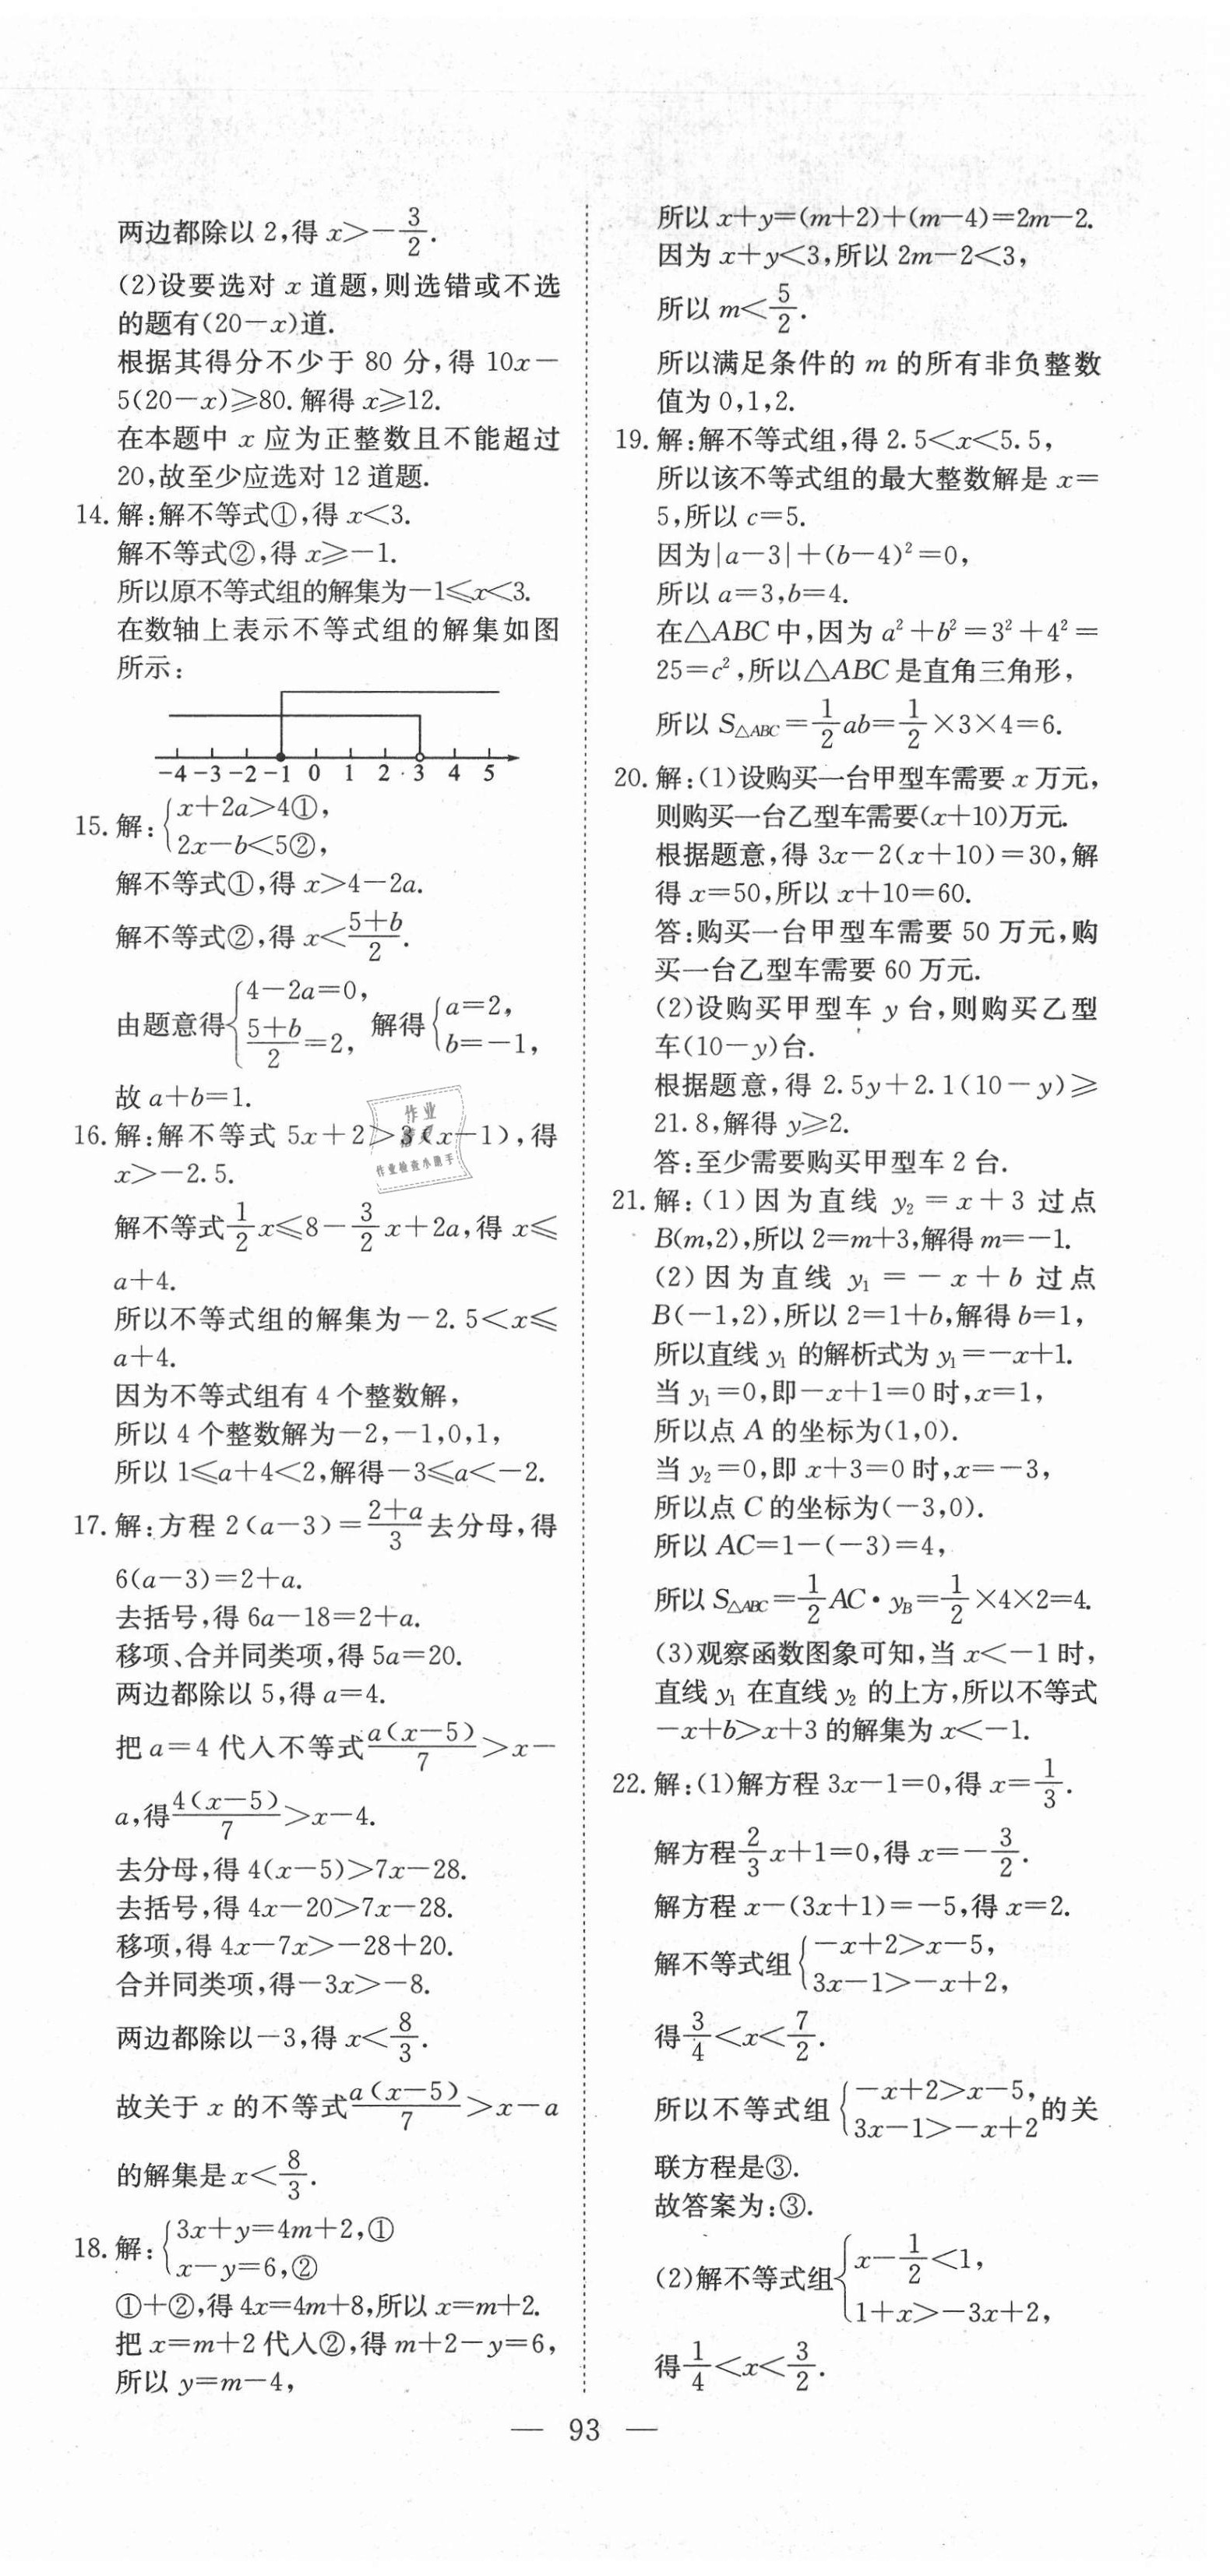 两边都除以 2,得 x>-3/2.
(2)设要选对 x 道题,则选错或不选
的题有(20-x)道.
根据其得分不少于 80 分,得 10x-
5(20-x)≥80. 解得 x≥12.
在本题中 x 应为正整数且不能超过
20,故至少应选对 12 道题.
14. 解:解不等式①,得 x<3.
解不等式②,得 x≥-1.
所以原不等式组的解集为-1≤x<3.
在数轴上表示不等式组的解集如图
所示:
-4 -3 -2 -1 0 1 2 3 4 5
15. 解:{x+2a>4①,
2x-b<5②,
解不等式①,得 x>4-2a.
解不等式②,得 x<(5+b)/2.
由题意得{4-2a=0, (5+b)/2=2, 解得{a=2, b=-1,
故 a+b=1.
16. 解:解不等式 5x+2>3(x-1),得
x>-2.5.
解不等式 1/2 x≤8-3/2 x+2a,得 x≤
a+4.
所以不等式组的解集为-2.5<x≤
a+4.
因为不等式组有 4 个整数解,
所以 4 个整数解为-2,-1,0,1,
所以 1≤a+4<2,解得-3≤a<-2.
17. 解:方程 2(a-3)=(2+a)/3 去分母,得
6(a-3)=2+a.
去括号,得 6a-18=2+a.
移项、合并同类项,得 5a=20.
两边都除以 5,得 a=4.
把 a=4 代入不等式 a(x-5)/7>x-
a,得 4(x-5)/7>x-4.
去分母,得 4(x-5)>7x-28.
去括号,得 4x-20>7x-28.
移项,得 4x-7x>-28+20.
合并同类项,得-3x>-8.
两边都除以-3,得 x<8/3.
故关于 x 的不等式 a(x-5)/7>x-a
的解集是 x<8/3.
18. 解:{3x+y=4m+2,①
x-y=6,②
①+②,得 4x=4m+8,所以 x=m+2.
把 x=m+2 代入②,得 m+2-y=6,
所以 y=m-4,
所以 x+y=(m+2)+(m-4)=2m-2.
因为 x+y<3,所以 2m-2<3,
所以 m<5/2.
所以满足条件的 m 的所有非负整数
值为 0,1,2.
19. 解:解不等式组,得 2.5<x<5.5,
所以该不等式组的最大整数解是 x=
5,所以 c=5.
因为|a-3|+(b-4)²=0,
所以 a=3,b=4.
在△ABC 中,因为 a²+b²=3²+4²=
25=c²,所以△ABC 是直角三角形,
所以 S△ABC=1/2 ab=1/2×3×4=6.
20. 解:(1)设购买一台甲型车需要 x 万元,
则购买一台乙型车需要(x+10)万元.
根据题意,得 3x-2(x+10)=30,解
得 x=50,所以 x+10=60.
答:购买一台甲型车需要 50 万元,购
买一台乙型车需要 60 万元.
(2)设购买甲型车 y 台,则购买乙型
车(10-y)台.
根据题意,得 2.5y+2.1(10-y)≥
21.8,解得 y≥2.
答:至少需要购买甲型车 2 台.
21. 解:(1)因为直线 y₂=x+3 过点
B(m,2),所以 2=m+3,解得 m=-1.
(2)因为直线 y₁=-x+b 过点
B(-1,2),所以 2=1+b,解得 b=1,
所以直线 y₁ 的解析式为 y₁=-x+1.
当 y₁=0,即-x+1=0 时,x=1,
所以点 A 的坐标为(1,0).
当 y₂=0,即 x+3=0 时,x=-3,
所以点 C 的坐标为(-3,0).
所以 AC=1-(-3)=4,
所以 S△ABC=1/2 AC·yB=1/2×4×2=4.
(3)观察函数图象可知,当 x<-1 时,
直线 y₁ 在直线 y₂ 的上方,所以不等式
-x+b>x+3 的解集为 x<-1.
22. 解:(1)解方程 3x-1=0,得 x=1/3.
解方程 2/3 x+1=0,得 x=-3/2.
解方程 x-(3x+1)=-5,得 x=2.
解不等式组{-x+2>x-5,
3x-1>-x+2,
得 3/4<x<7/2.
所以不等式组{-x+2>x-5, 3x-1>-x+2 的关
联方程是③.
故答案为:③.
(2)解不等式组{x-1/2<1,
1+x>-3x+2,
得 1/4<x<3/2.
— 93 —
作业
作业检查小助手